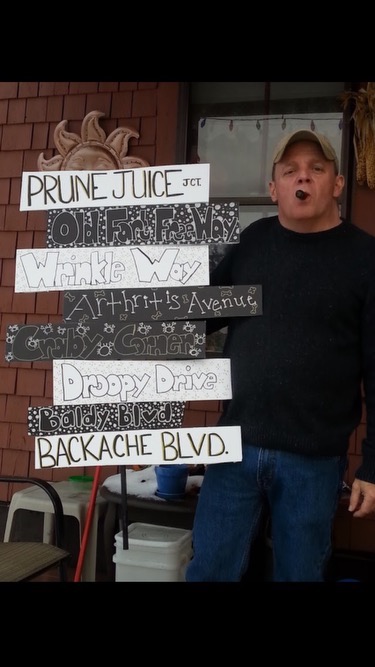 PRUNE JUICE JCT.
Old Fart FreeWay
Wrinkle Way
Arthritis Avenue
Craby Corner
Droopy Drive
Baldy Blvd
BACKACHE BLVD.